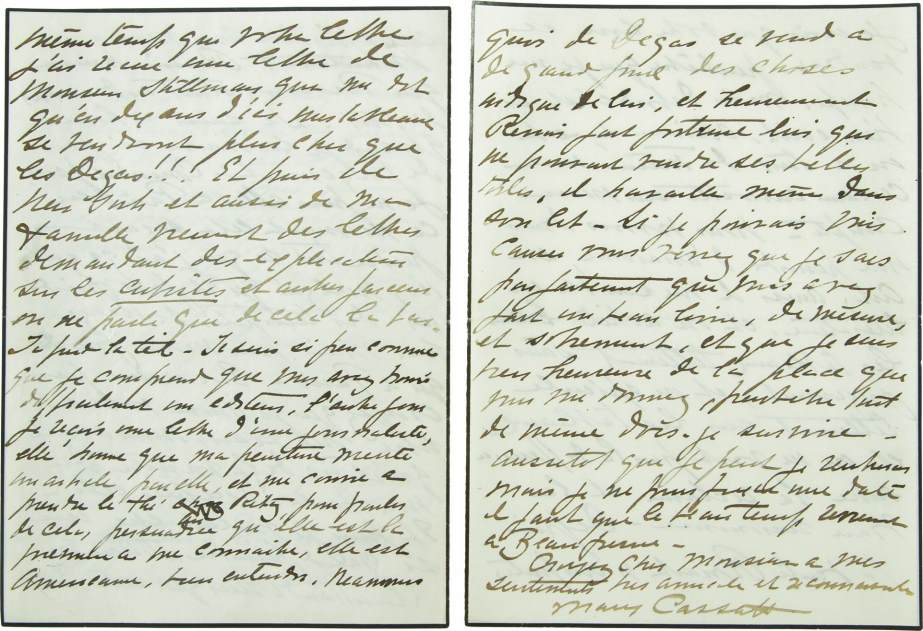 même temps que votre lettre
j'ai reçue une lettre de
Monsieur Stillman qui me dit
qu'en dix ans d'ici mes tableaux
se vendront plus cher que
les Degas!!! Et puis de
New York et aussi de ma
famille viennent des lettres
demandant des explications
sur les cubistes et autres farceurs
on ne parle que de cela là bas.
Je perd la tête - Je suis si peu connue
que je comprend que vous avez trouvé
difficilement un editeur, l'autre jour
je reçois une lettre d'une journaliste,
elle trouve que ma peinture merite
un article d'elle, et me convie a
prendre le thé au Ritz, pour parler
de cela, persuadée qu'elle est la
premiere a me connaitre, elle est
Americaine, bien entendu. Neanmoins
de Degas se vend a
de grand prix des choses
indigne de lui, et heureusement
Renoir fait fortune lui qui
ne pouvant vendre ses belles
toiles, il travaille même dans
son lit - Si je pouvais vous
causer vous verrez que je sais
parfaitement que vous avez
fait un beau livre, de mesure,
et sobrement, et que je suis
tres heureuse de la place que
vous me donnez, peutêtre tout
de même dois-je survivre -
aussitot que je peut je rentrerai
mais je ne puis fixer une date
il faut que le beau temps revienne
a Beaufresne -
Croyez Cher Monsieur a mes
sentiments tres amicale et reconnaissants
Mary Cassatt